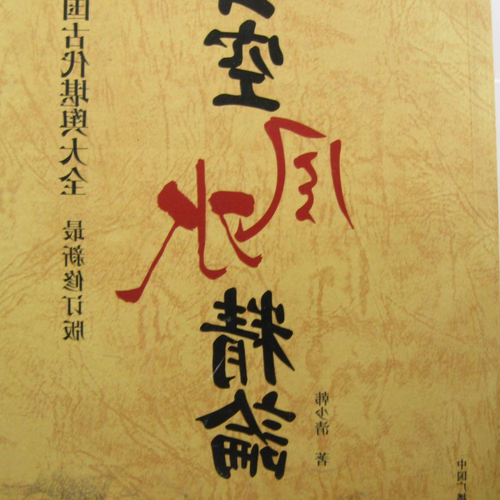 空
风水
精論
韩少清 著
国古代堪舆大全 最新修订版
中国广